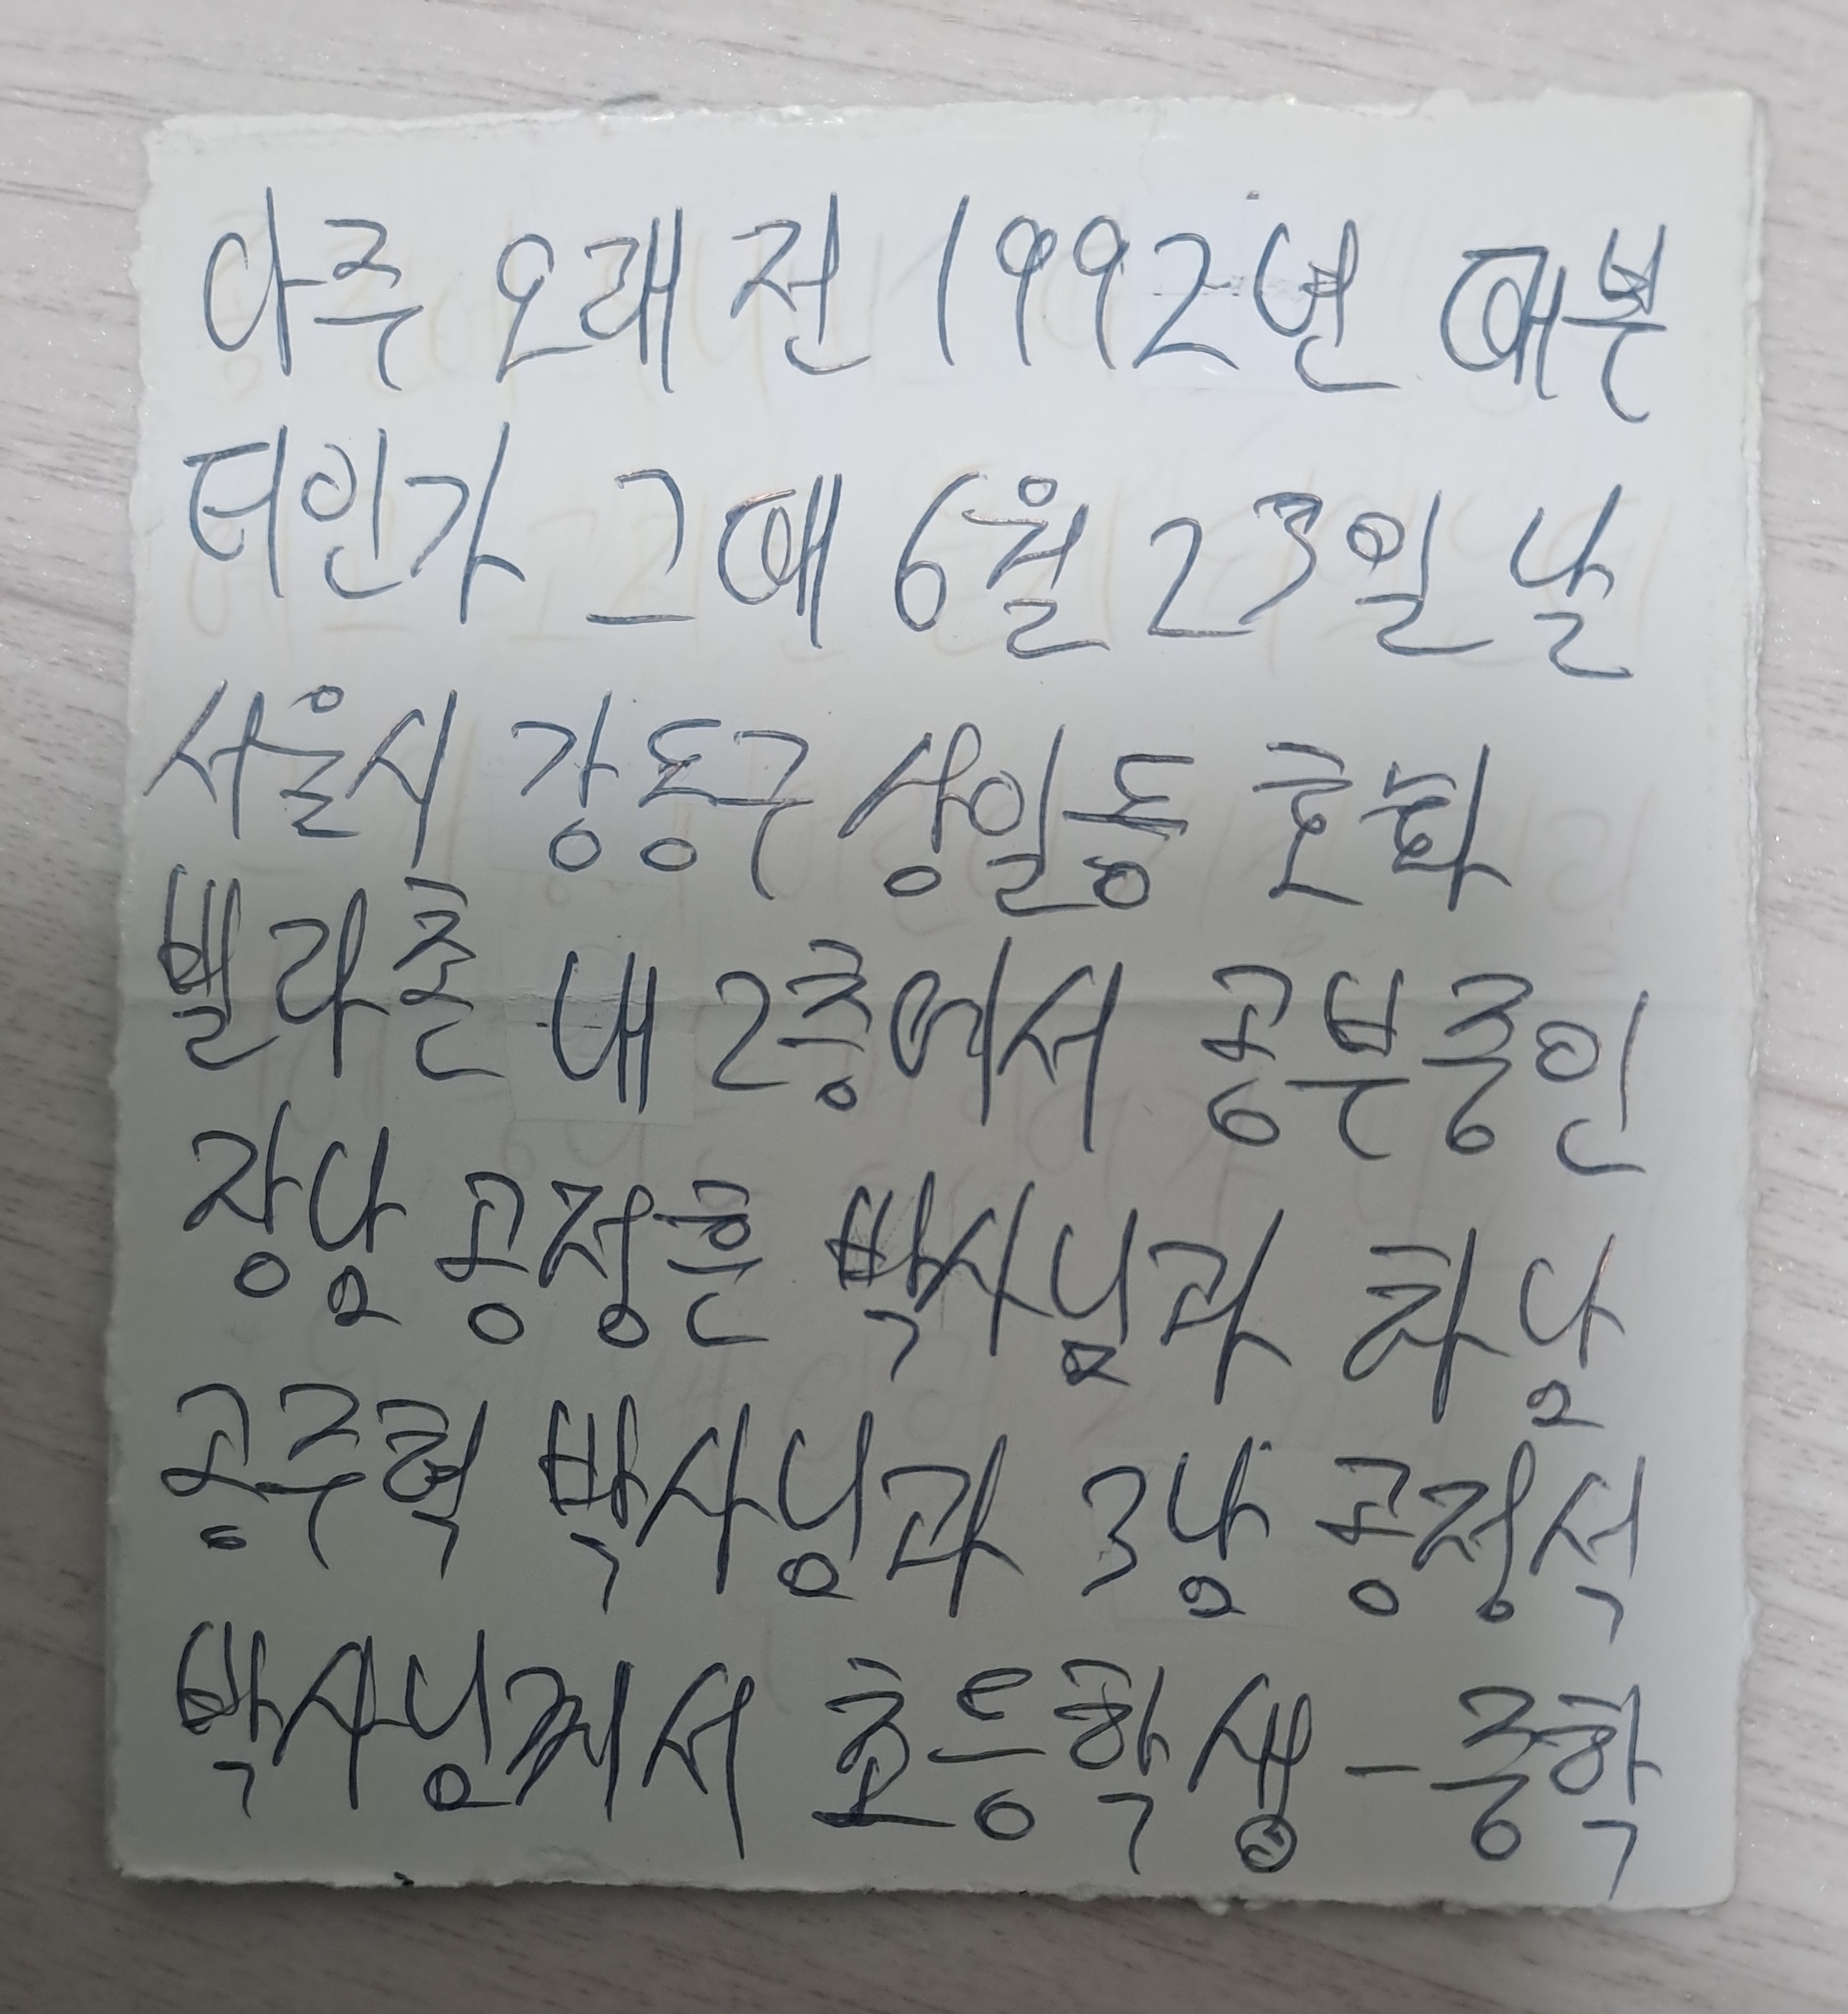 아주 오래 전 1992년 때부
터인가 그때 6월 23일 날
서울시 강동구 상일동 호화
빌라촌 내 2층에서 공부중인
장남 공정훈 박사님과 차남
공주혁 박사님과 3남 공정석
박사님께서 초등학생 - 중학